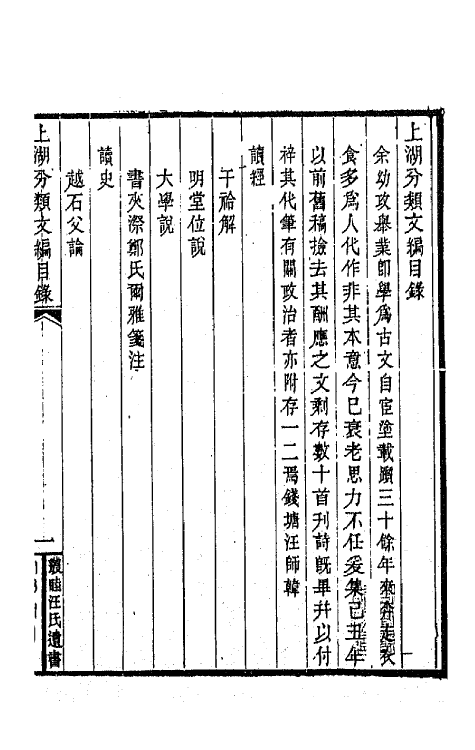 上湖分類文編目錄
余幼攻舉業卽學爲古文自宦塗載躓三十餘年來奔走衣
食多爲人代作非其本意今已衰老思力不任爰集己丑年
以前舊稿撿去其酬應之文剩存數十首刊詩旣畢幷以付
梓其代筆有關政治者亦附存一二焉錢塘汪師韓
讀經
干祫解
明堂位說
大學說
書夾漈鄭氏爾雅箋注
讀史
越石父論
上湖分類文編目錄
一
叢睦汪氏遺書